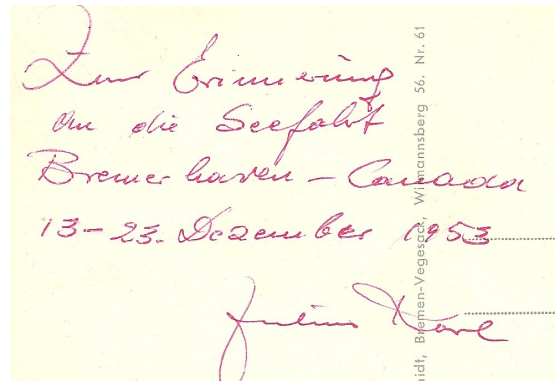 Zur Erinnerung
an die Seefahrt
Bremerhaven – Canada
13–23. Dezember 1953
Julius Karl
midt, Bremen-Vegesack, Wittmannsberg 56. Nr. 61